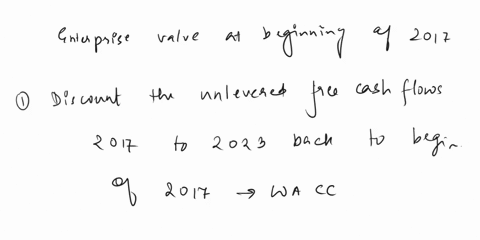 Enterprise value at beginning of 2017
① Discount the unlevered free cash flows
2017 to 2023 back to begin
of 2017 → WACC